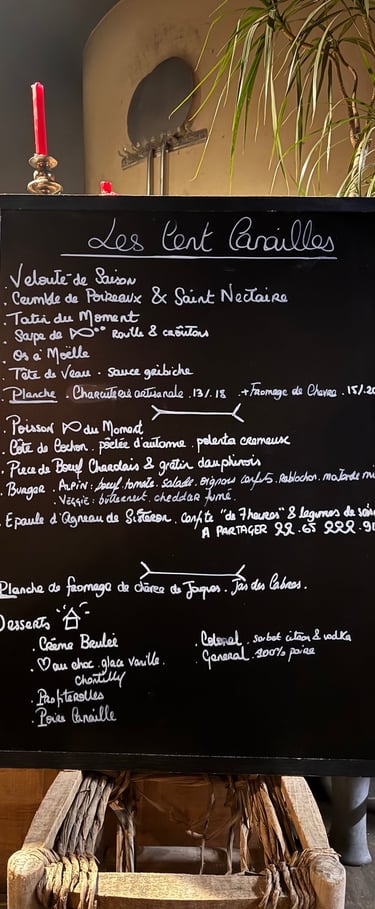 Les Cent Canailles
. Velouté de Saison
. Crumble de Poireaux & Saint Nectaire
. Tatin du Moment
. Soupe de rouille & croûtons
. Os à Moëlle
. Tête de Veau . sauce gribiche
. Planche . Charcuterie artisanale . 13/.18 . + Fromage de Chèvre . 15/.20
. Poisson du Moment
. Côte de Cochon . poêlée d'automne . polenta cremeux
. Piece de Boeuf Charolais & gratin dauphinois
. Burger . ALPIN : boeuf . tomate . salade . oignons confits . Reblochon . moutarde mi
VEGGIE : butternut . cheddar fumé .
. Epaule d'Agneau de Sisteron . Confite "de 7 heures" & légumes de sais
A PARTAGER
Planche de fromage de chèvre de Jouques . Jas des Cabres .
Desserts
. Crème Brulée
. Colonel . sorbet citron & vodka
. au choc . glace vanille .
chantilly
. General . 100% poire
. Profiterolles
. Poire Canaille